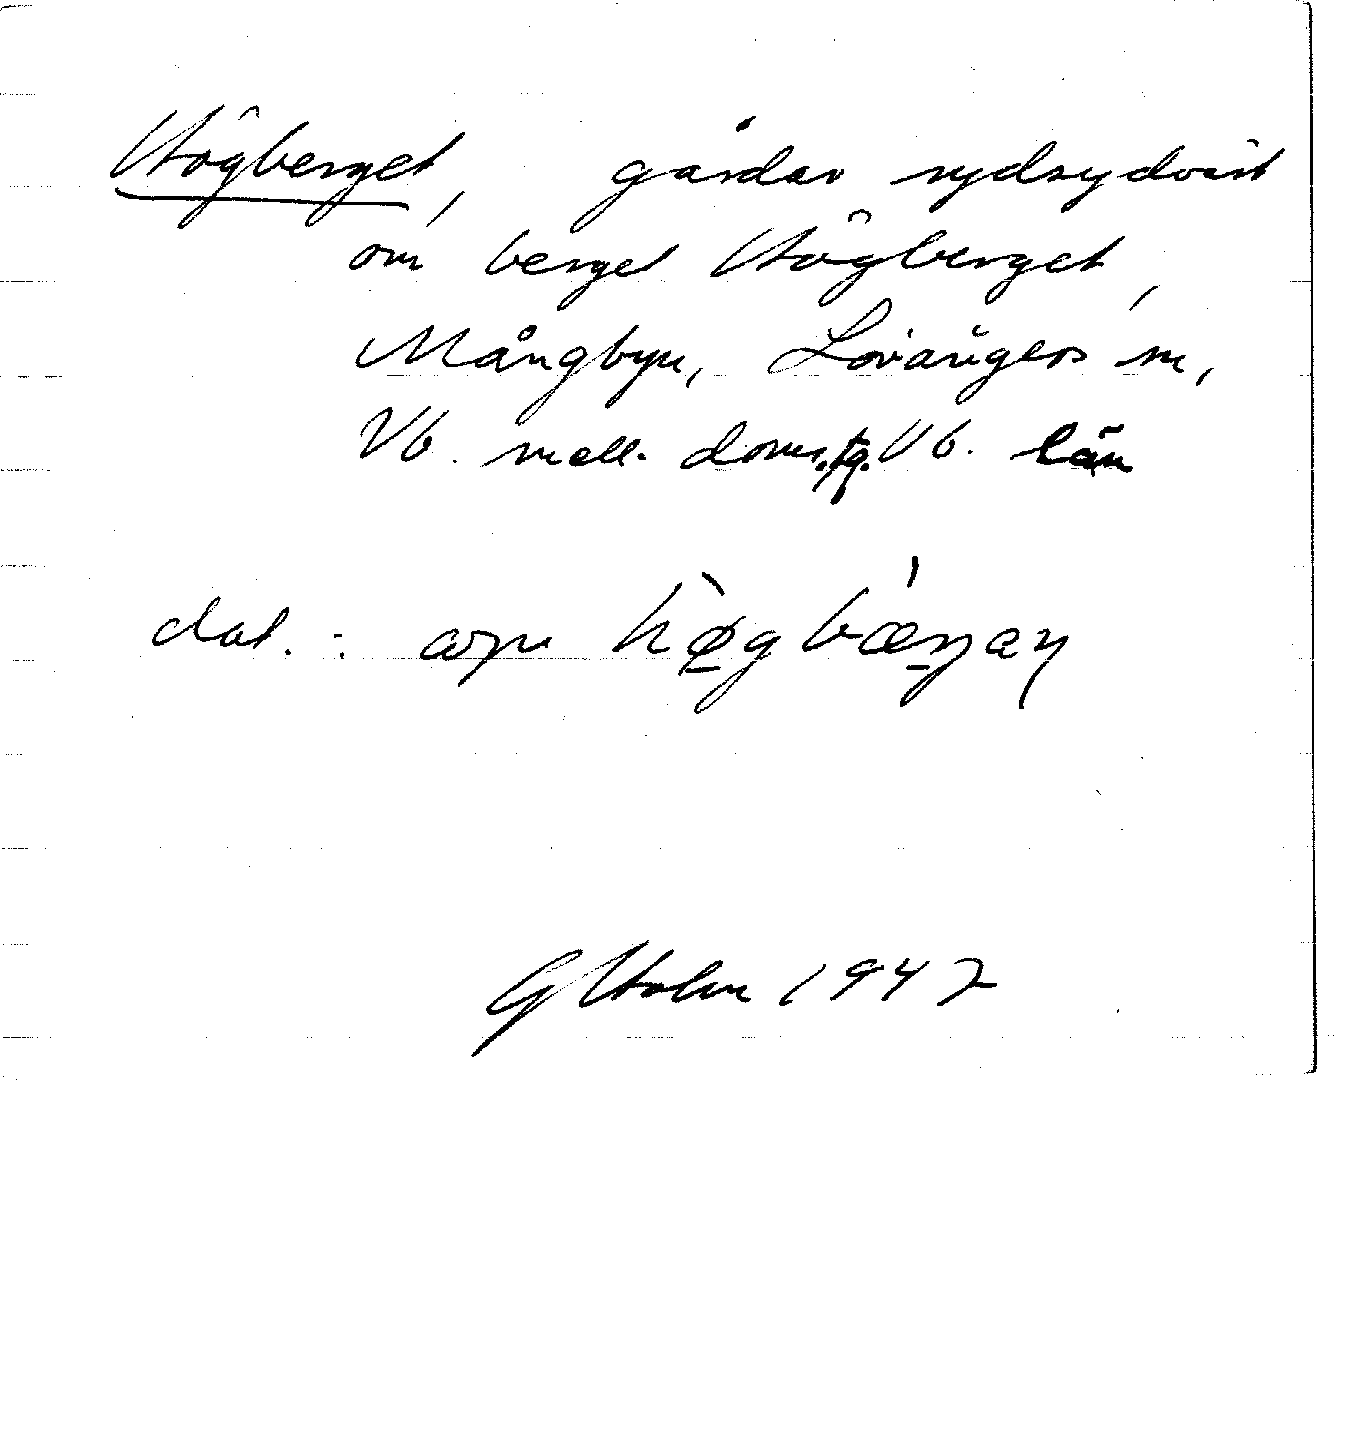 Högberget, gårdar sydsydväst
om berget Högberget,
Mångbyn, Lövångers sn,
Vb. mell. doms.tg. Vb. län
dat.: høgbæŋen
G Holm 1947